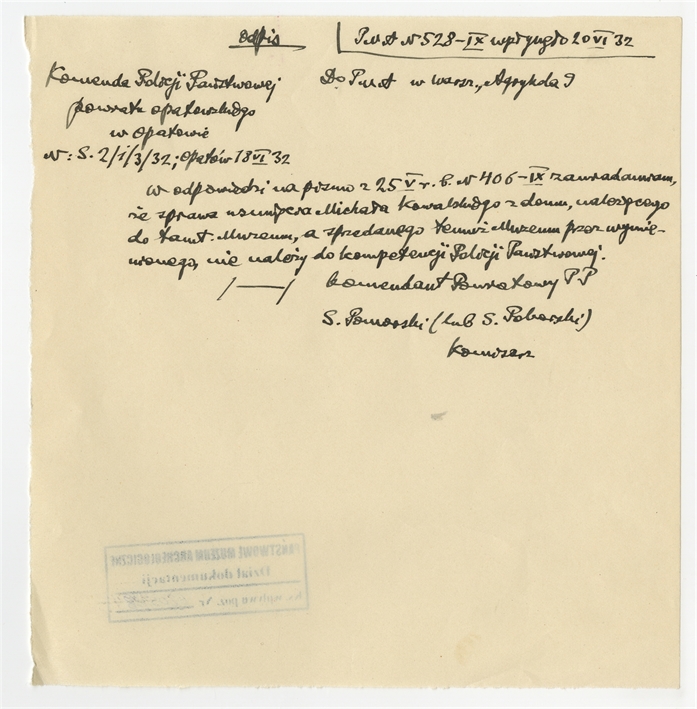 odpis
P.M.A N 528-IX wpłynęło 20 VI 32
Komenda Policji Państwowej
powiatu opatowskiego
w Opatowie
N: S. 2/1/3/32; Opatów 18 VI 32
Do P.M.A w Warsz., Agrykola 9
w odpowiedzi na pismo z 25 V r. b. N 406-IX zawiadamiam,
że sprawa usunięcia Michała Kowalskiego z domu, należącego
do tamt. Muzeum, a sprzedanego temuż Muzeum przez wymie-
nionego, nie należy do kompetencji Policji Państwowej.
/—/ Komendant Powiatowy PP
S. Pomorski (lub S. Poborski)
Komisarz
PAŃSTWOWE MUZEUM ARCHEOLOGICZNE
Dział dokumentacji
Ks. wpływu poz. Nr